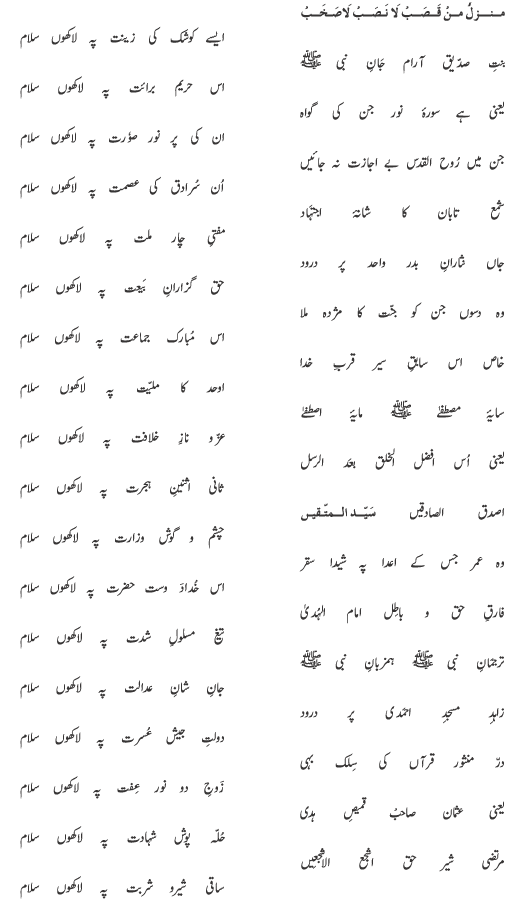 منزلٌ منْ قَصَبْ لَا نَصَبْ لَا صَخَبْ
ایسے کوشک کی زینت پہ لاکھوں سلام
بنتِ صدّیق آرام جانِ نبی ﷺ
اس حریم برائت پہ لاکھوں سلام
یعنی ہے سورۂ نور جن کی گواہ
ان کی پر نور صوٗرت پہ لاکھوں سلام
جن میں رُوح القدس بے اجازت نہ جائیں
اُن سُرادق کی عصمت پہ لاکھوں سلام
شمع تابان کا شانۂ اجتہاد
مفتیِ چار ملت پہ لاکھوں سلام
جاں نثارانِ بدر واحد پر درود
حق گزارانِ بَیعت پہ لاکھوں سلام
وہ دسوں جن کو جنّت کا مژدہ ملا
اس مُبارک جماعت پہ لاکھوں سلام
خاص اس سابقِ سیر قربِ خدا
اوحد کا ملیّت پہ لاکھوں سلام
سایۂ مصطفےٰ ﷺ مایۂ اصطفےٰ
عزّ و نازِ خلافت پہ لاکھوں سلام
یعنی اُس افضل الخلق بعد الرسل
ثانی اثنینِ ہجرت پہ لاکھوں سلام
اصدق الصادقیں سَیّد المتّقیں
چشم و گوش وزارت پہ لاکھوں سلام
وہ عمر جس کے اعدا پہ شیدا سقر
اس خُدادَ دوست حضرت پہ لاکھوں سلام
فارقِ حق و باطل امام الہُدیٰ
تیغِ مسلولِ شدت پہ لاکھوں سلام
ترجمانِ نبی ﷺ ہمزبانِ نبی ﷺ
جانِ شانِ عدالت پہ لاکھوں سلام
زاہدِ مسجدِ احمدی پر درود
دولتِ جیشِ عُسرت پہ لاکھوں سلام
درِّ منثور قرآں کی سِلک بہی
زَوجِ دو نور عِفت پہ لاکھوں سلام
یعنی عثمان صاحبُ قمیصِ ہدی
حُلّہ پوشِ شہادت پہ لاکھوں سلام
مرتضی شیر حق اشجع الاشجعیں
ساقی شیرو شربت پہ لاکھوں سلام